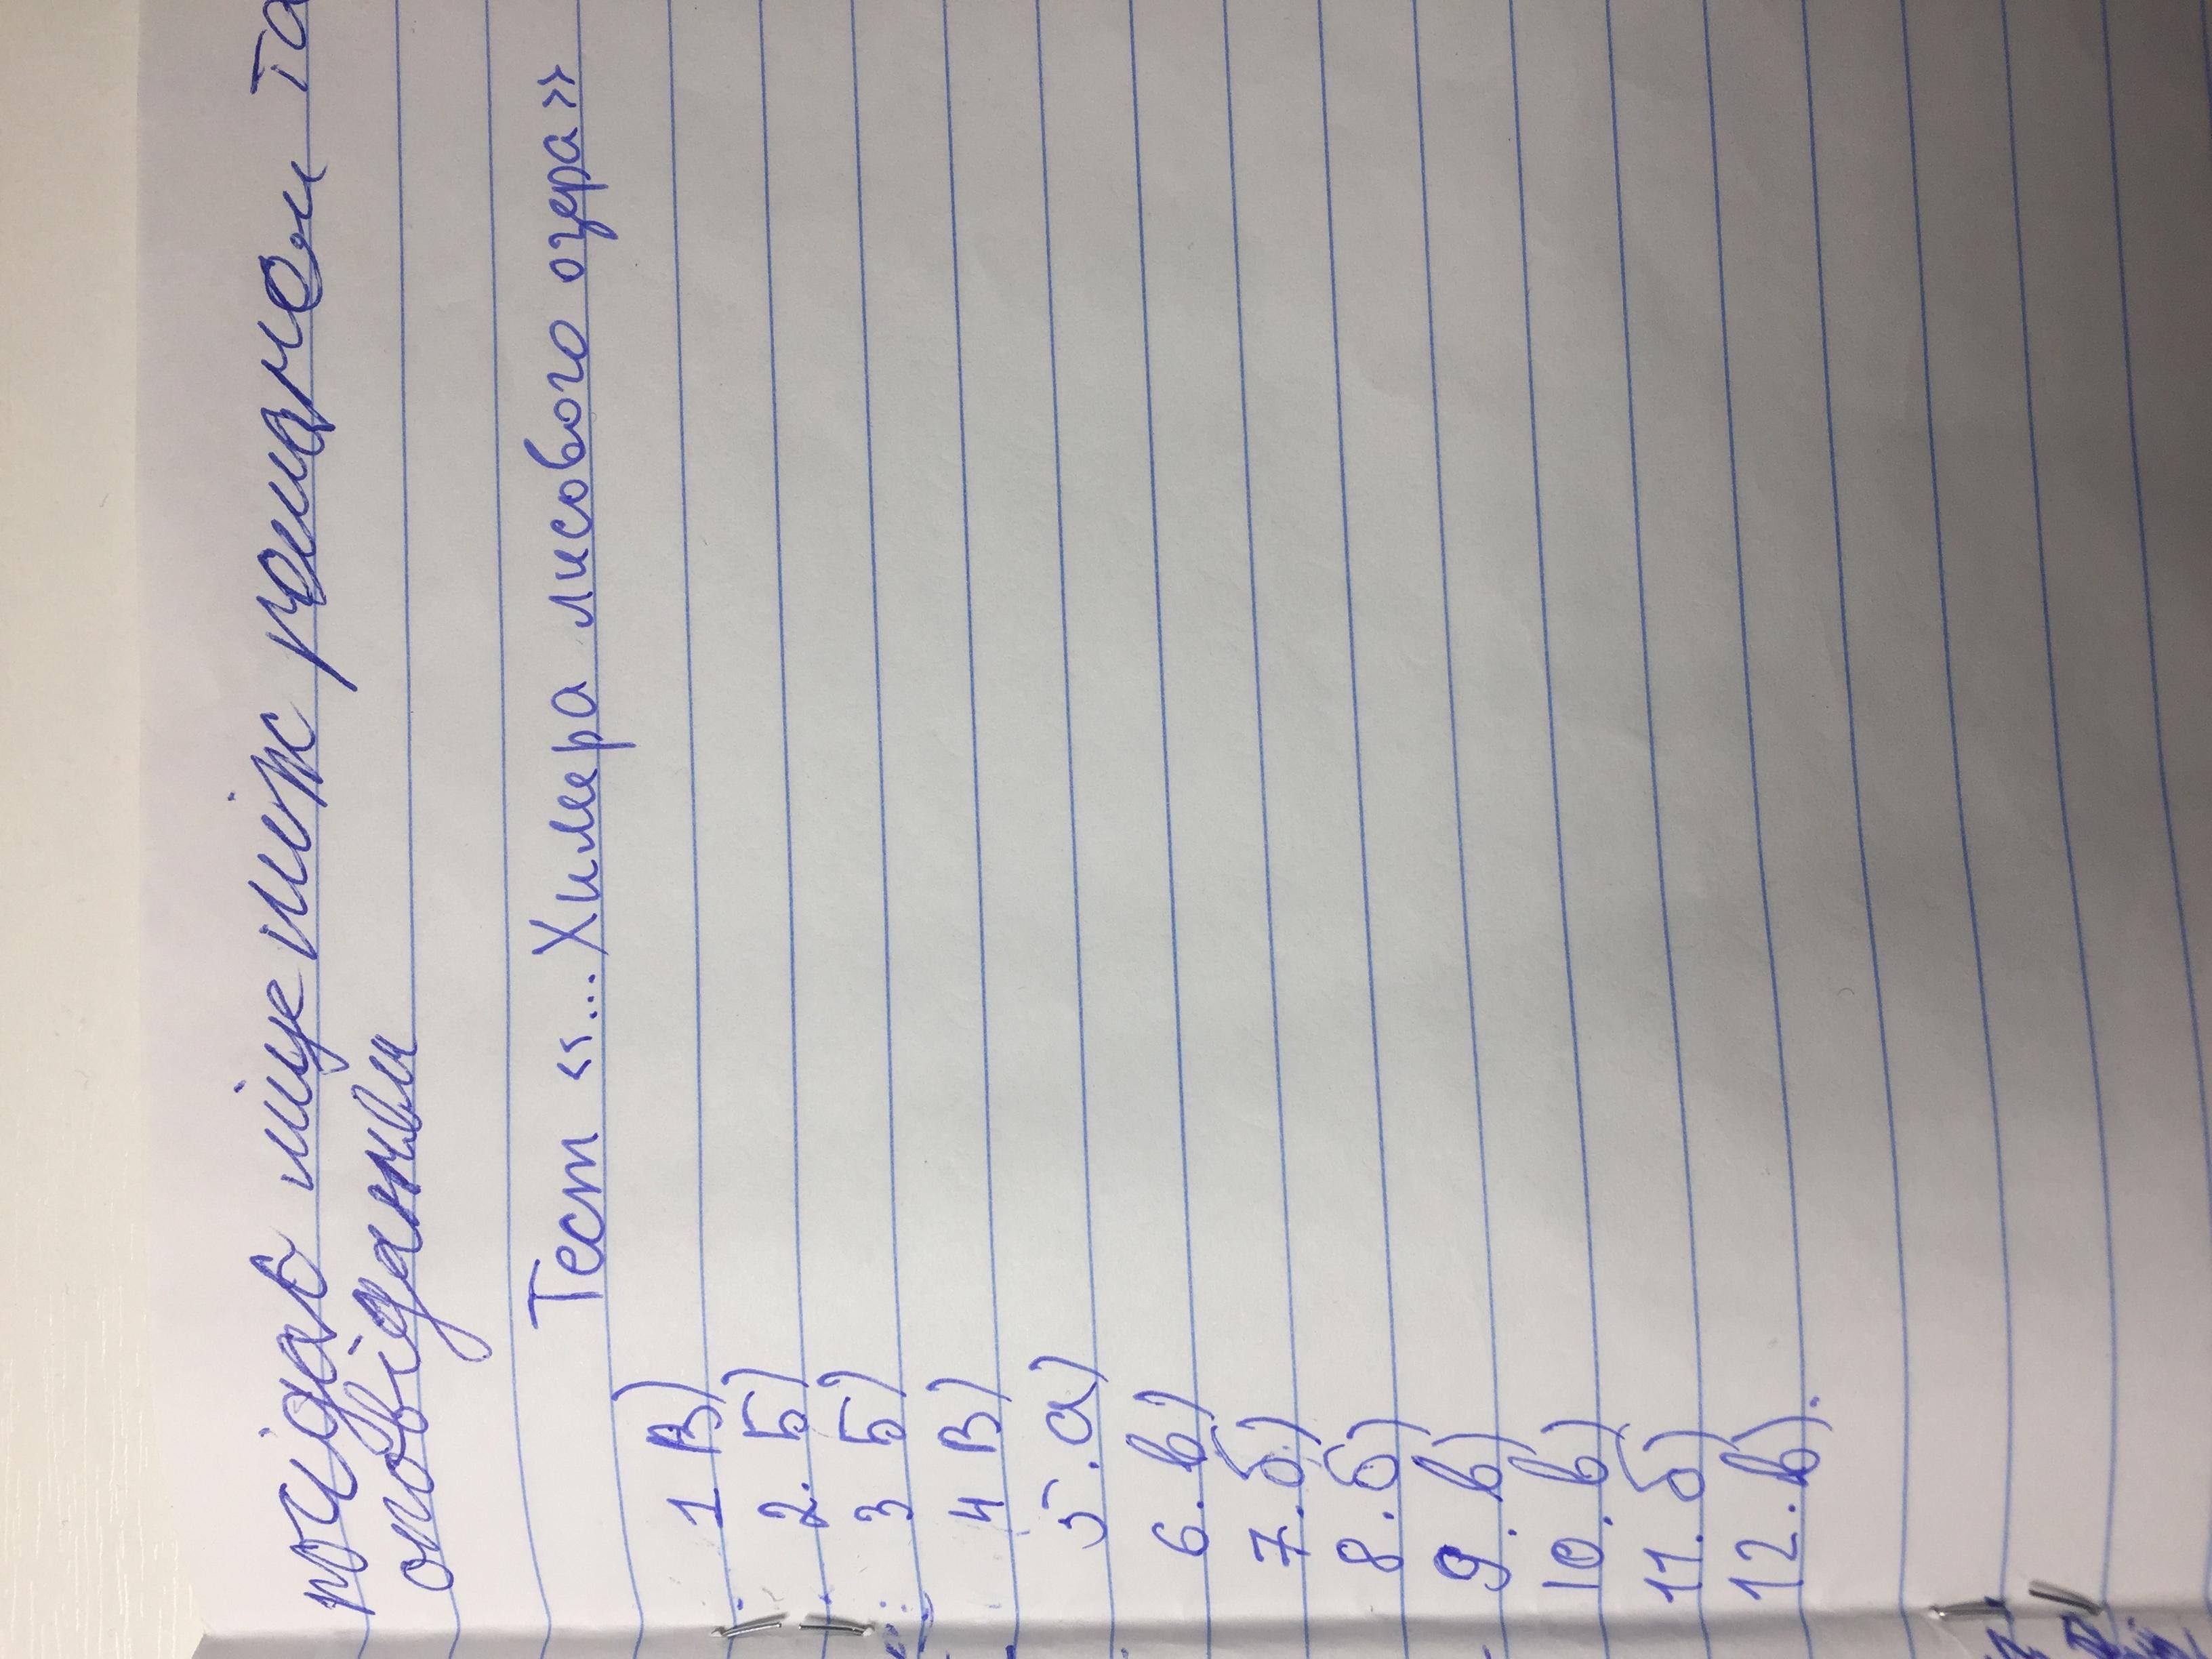 посідав місце між романом та
оповіданням
Тест «...Химера лисового озера»
1 В)
2. Б)
3 Б)
4 В)
5. а)
6. в)
7. б)
8. б)
9. в)
10. в)
11. б)
12. в).